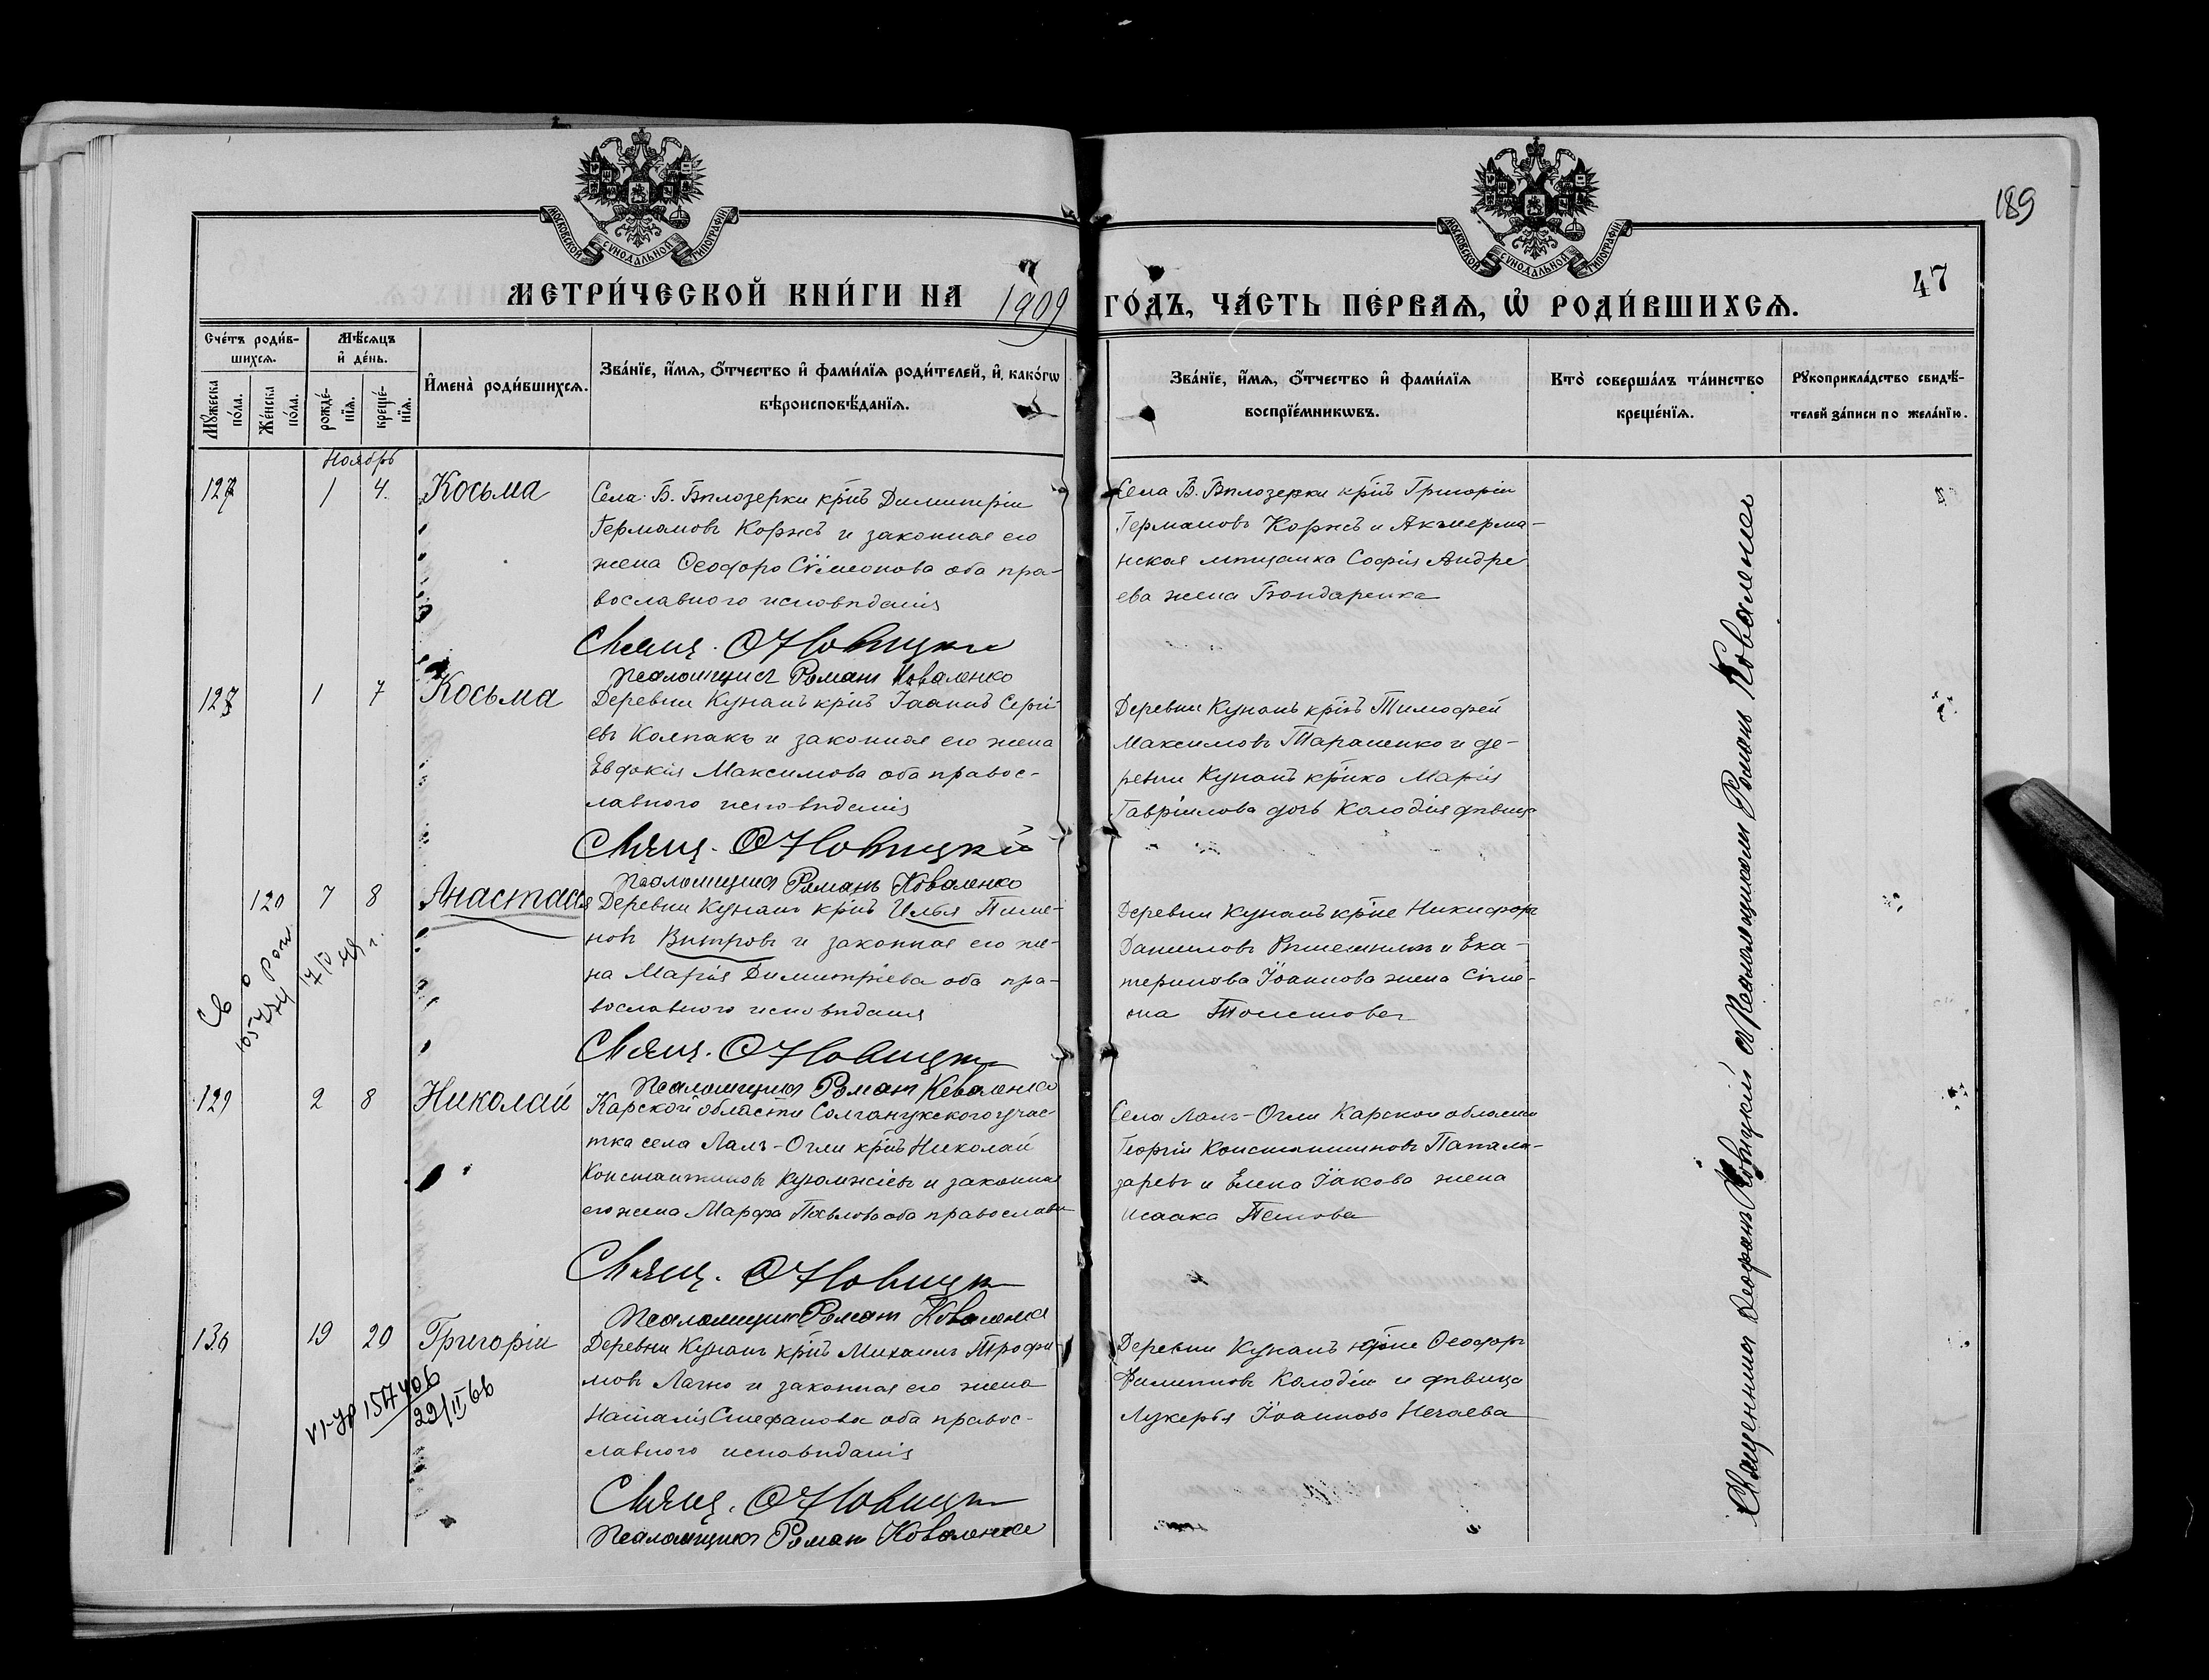 МОСКОВСКОЙ СѴНОДАЛЬНОЙ ТИПОГРАФІИ
МОСКОВСКОЙ СѴНОДАЛЬНОЙ ТИПОГРАФІИ
189
47
МЕТРИ́ЧЕСКОЙ КНИ́ГИ НА 1909 ГО́ДЪ, ЧА́СТЬ ПЕ́РВАѦ, Ѽ РОДИ́ВШИХСѦ.
Сче́тъ роди́в-
шихсѧ.
Мꙋжеска по́ла.
Же́нска по́ла.
Мѣ́сѧцъ
и҆ де́нь.
рожде́-
нїѧ.
креще́-
нїѧ.
И҆мена̀ роди́вшихсѧ.
Зва́нїе, и҆́мѧ, ѻ҆́тчество и҆ фами́лїѧ роди́телей, и҆ како́гѡ
вѣроисповѣ́данїѧ.
Зва́нїе, и҆́мѧ, ѻ҆́тчество и҆ фами́лїѧ
воспрїе́мникѡвъ.
Кто̀ соверша́лъ та́инство
креще́нїѧ.
Рꙋкоприкла́дство свидѣ́-
телей за́писи по жела́нїю.
Ноябрь
127 1 4. Косьма
Села Б. Бѣлозерки кр̃нъ Димитрій
Германовъ Коржъ и законная его
жена Ѳеодора Сѵмеонова оба пра-
вославного исповѣданія
Свящ. Ѳ Новицкій
Псаломщикъ Романъ Коваленко
Села Б. Бѣлозерки кр̃нъ Григорій
Германовъ Коржъ и Аккерма-
нская мѣщанка Софія Андре
ева жена Бондаренка
1 7 Косьма
Деревни Кунанъ кр̃нъ Іоаннъ Сергі
евъ Колпакъ и законная его жена
Евдокія Максимова оба правос-
лавного исповѣданія
Свящ. Ѳ Новицкій
Псаломщикъ Романъ Коваленко
Деревни Кунанъ кр̃нъ Тимофей
Максимовъ Тараненко и де-
ревни Кунанъ кр̃нка Марія
Гавріилова дочь Колодія дѣвица
120 7 8 Анастасія
Деревни Кунанъ кр̃нъ Илья Пиме-
новъ Вѣтровъ и законная его же-
на Марія Димитріева оба пра-
вославного исповѣданія
Свящ. Ѳ Новицкій
Псаломщикъ Романъ Коваленко
Деревни Кунанъ кр̃не Никифоръ
Даниловъ и Ека-
теринова Іоаннова жена Сѵме-
она
Св о рож
129 2 8 Николай
Карской области участка
тка села Лалъ-Огли кр̃нъ Николай
Константиновъ и законная
его жена Марфа Павлова оба православн
Свящ. Ѳ Новицкій
Псаломщикъ Романъ Коваленко
Села Лалъ-Огли Карской области
Георгій Константиновъ Папала-
заревъ и Елена Іакова жена
Исаака
130 19 20 Григорій
Деревни Кунанъ кр̃нъ Михаилъ Трофи-
мовъ Лагно и законная его жена
Наталія Стефанова оба правос-
лавного исповѣданія
Свящ. Ѳ Новицкій
Псаломщикъ Романъ Коваленко
Деревни Кунанъ кр̃не Ѳеодоръ
Филипповъ Колодій и дѣвица
Лукерья Іоаннова Нечаева
157406
22/II 66
Священникъ Ѳеофанъ Новицкій съ Псаломщикомъ Романъ Коваленко